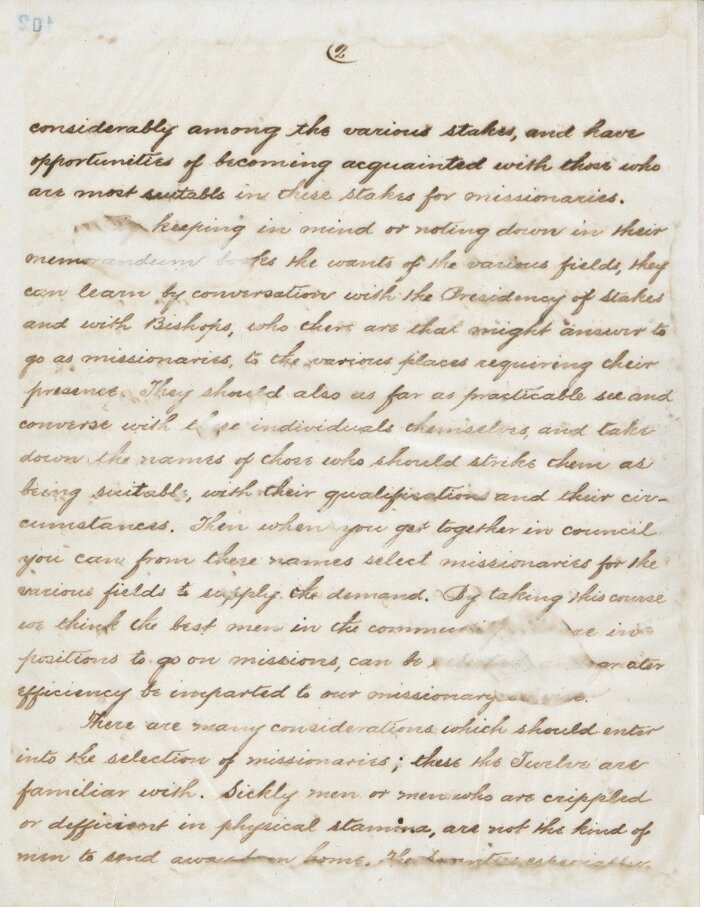 201
2
considerably among the various stakes, and have
opportunities of becoming acquainted with those who
are most suitable in these stakes for missionaries.
keeping in mind or noting down in their
memorandum books the wants of the various fields, they
can learn by conversation with the Presidency of Stakes
and with Bishops, who there are that might answer to
go as missionaries, to the various places requiring their
presence. They should also as far as practicable see and
converse with these individuals themselves, and take
down the names of those who should strike them as
being suitable, with their qualifications and their cir-
cumstances. Then when you get together in council
you can from these names select missionaries for the
various fields to supply the demand. By taking this course
we think the best men in the are in
positions to go on missions, can be greater
efficiency be imparted to our missionary
There are many considerations which should enter
into the selection of missionaries; these the Twelve are
familiar with. Sickly men or men who are crippled
or defficient in physical stamina, are not the kind of
men to send home. The